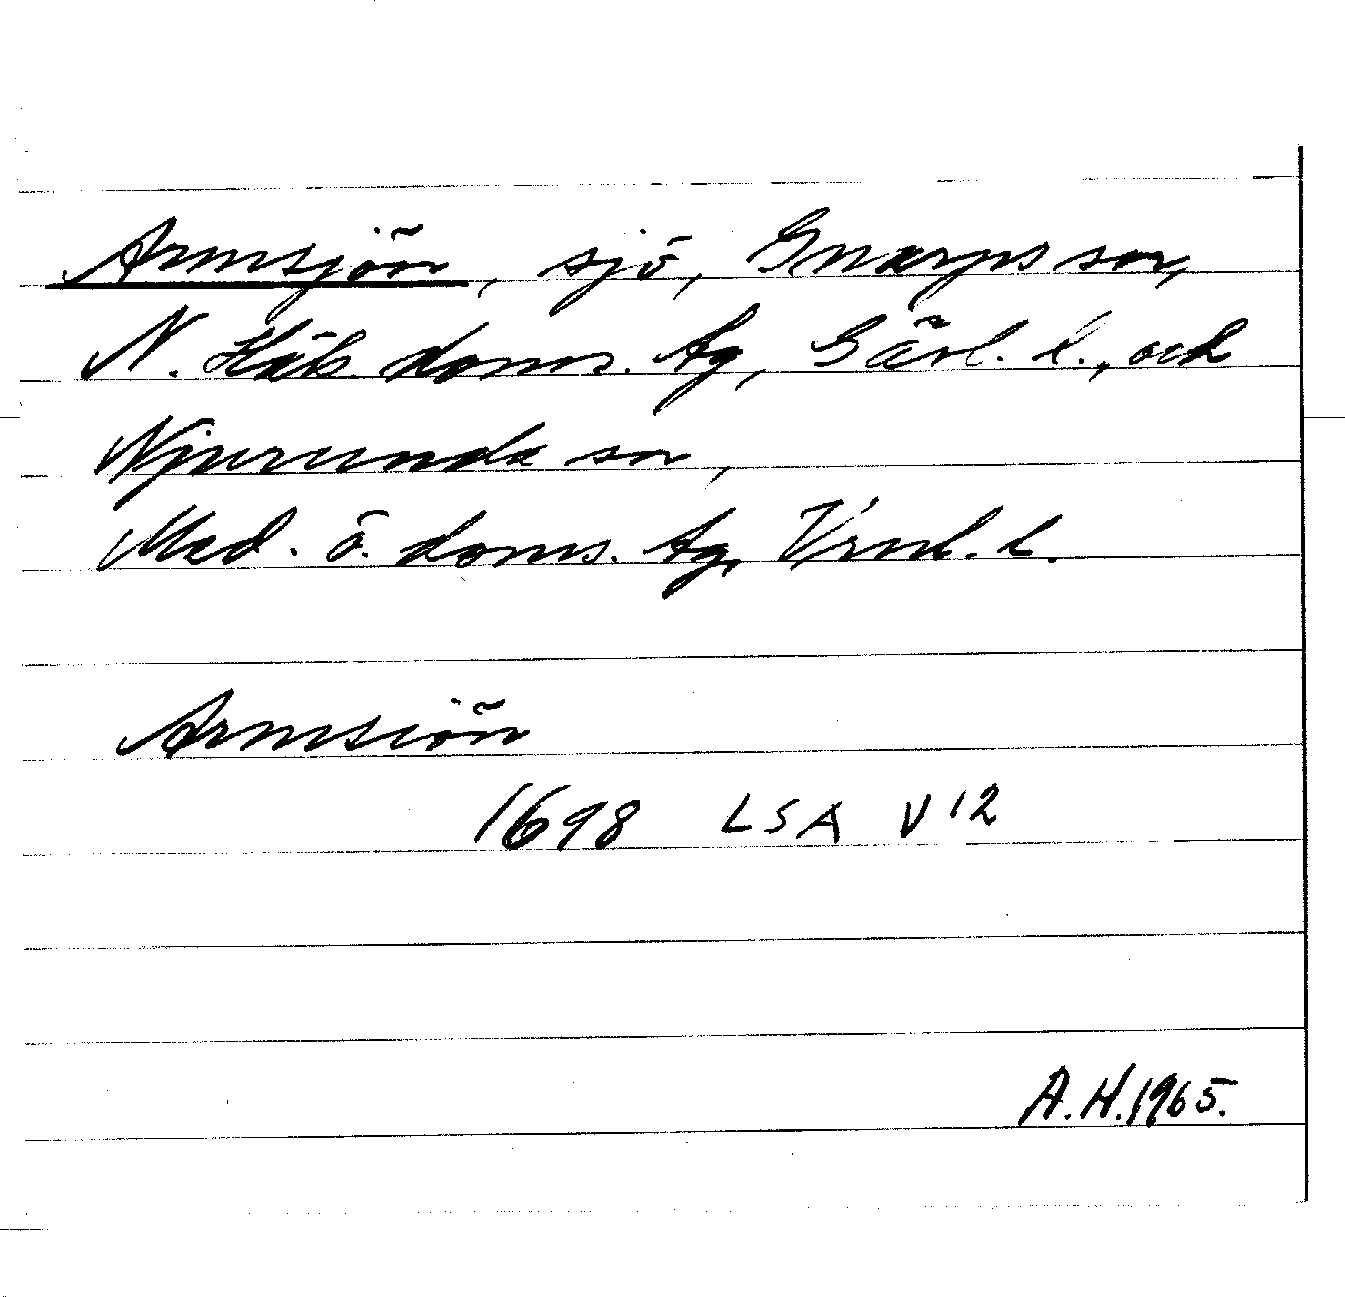 Armsjön, sjö, Gnarps sn,
N. Häls. doms. tg, Gävl. l., och
Njurunda sn,
Med. ö. doms. tg, Vrnl. l.
Armsiön
1698 LSA V12
A.H.1965.